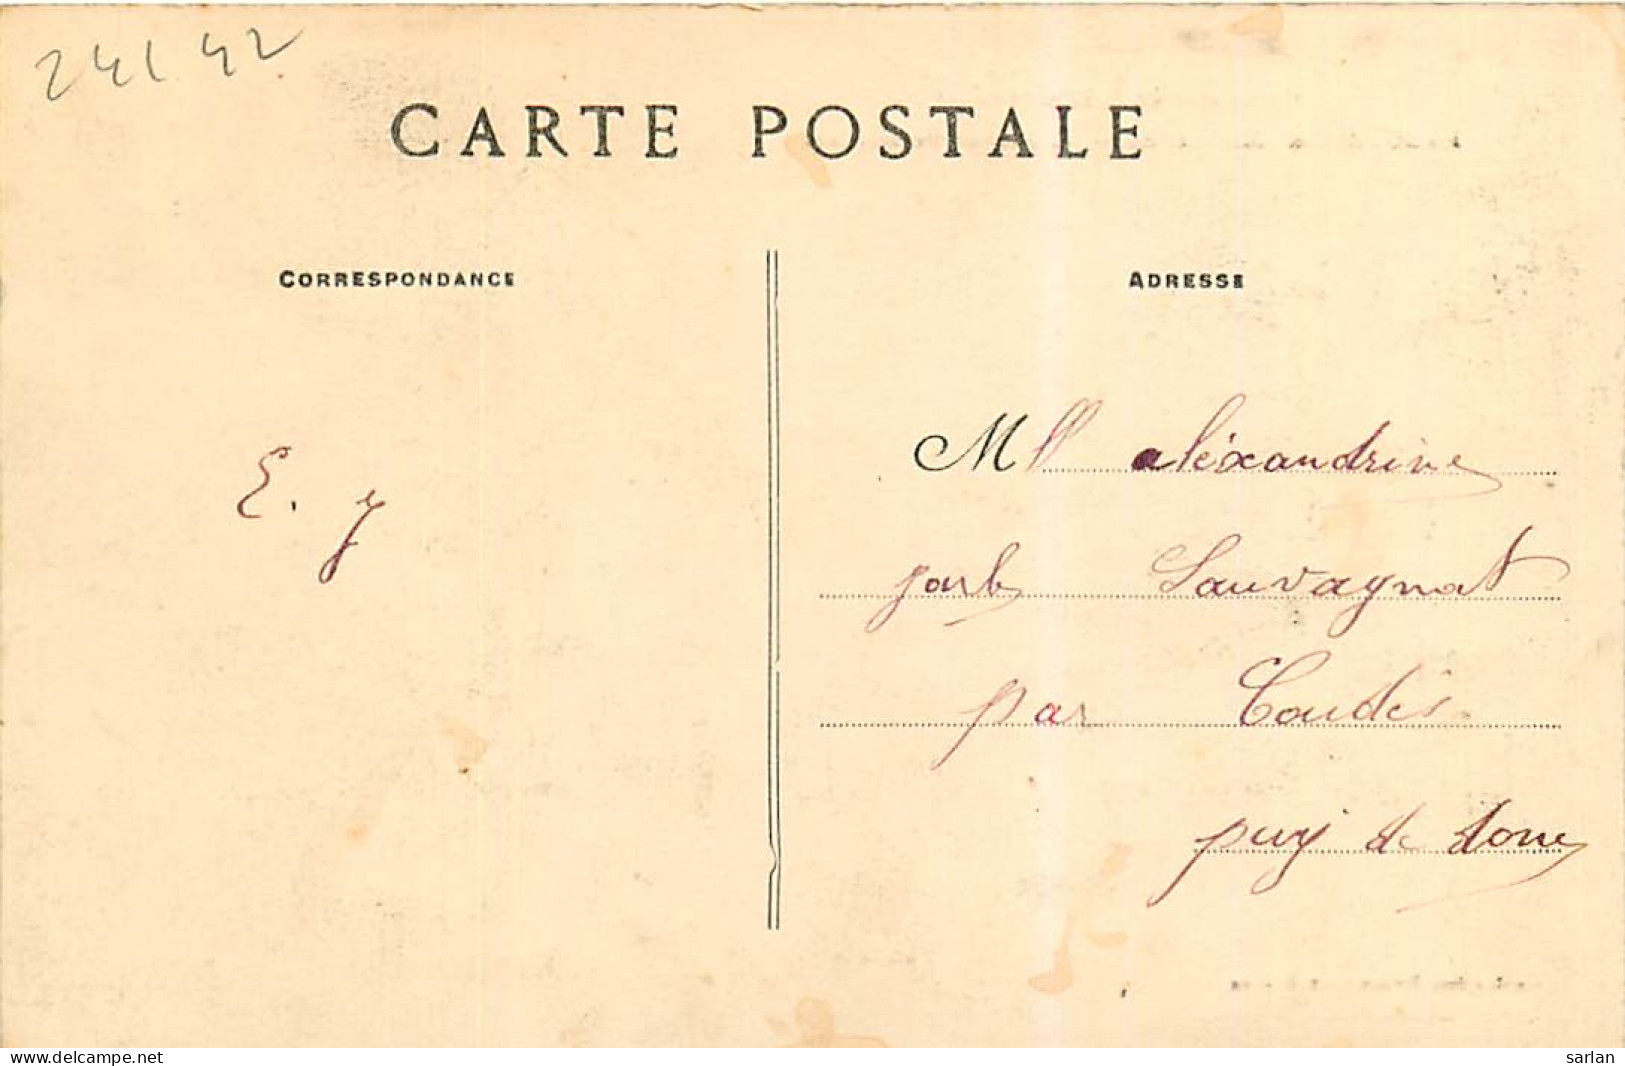 24142
CARTE POSTALE
CORRESPONDANCE
ADRESSE
E. J
Mll aléxandrine
Sauvagnat
par Coudes
puy de dome
www.delcampe.net
sarlan